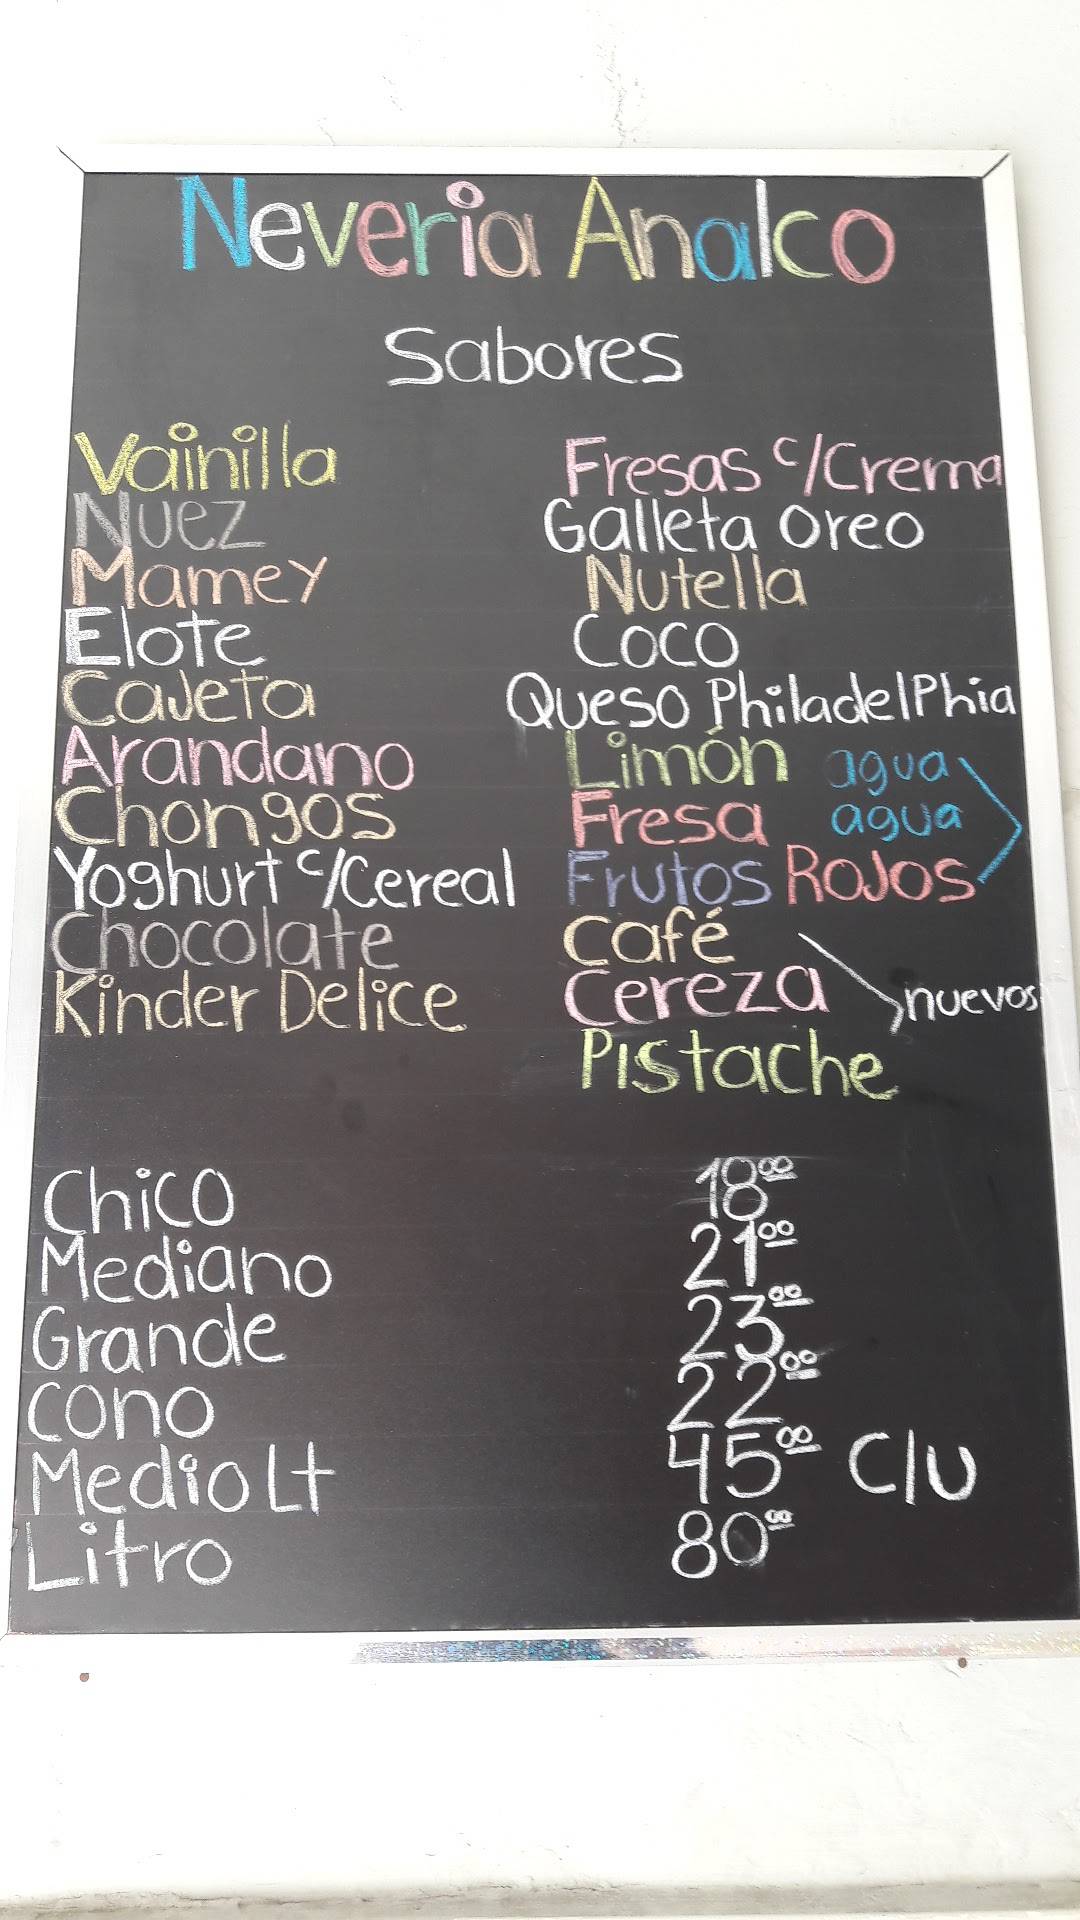 Neveria Analco
Sabores
Vainilla
Nuez
Mamey
Elote
Cajeta
Arandano
Chongos
Yoghurt c/Cereal
Chocolate
Kinder Delice
Fresas c/Crema
Galleta Oreo
Nutella
Coco
Queso Philadelphia
Limón agua
Fresa agua
Frutos Rojos
Café
Cereza
Pistache
nuevos
Chico 18.00
Mediano 21.00
Grande 23.00
Cono 22.00
Medio Lt 45.00 C/U
Litro 80.00